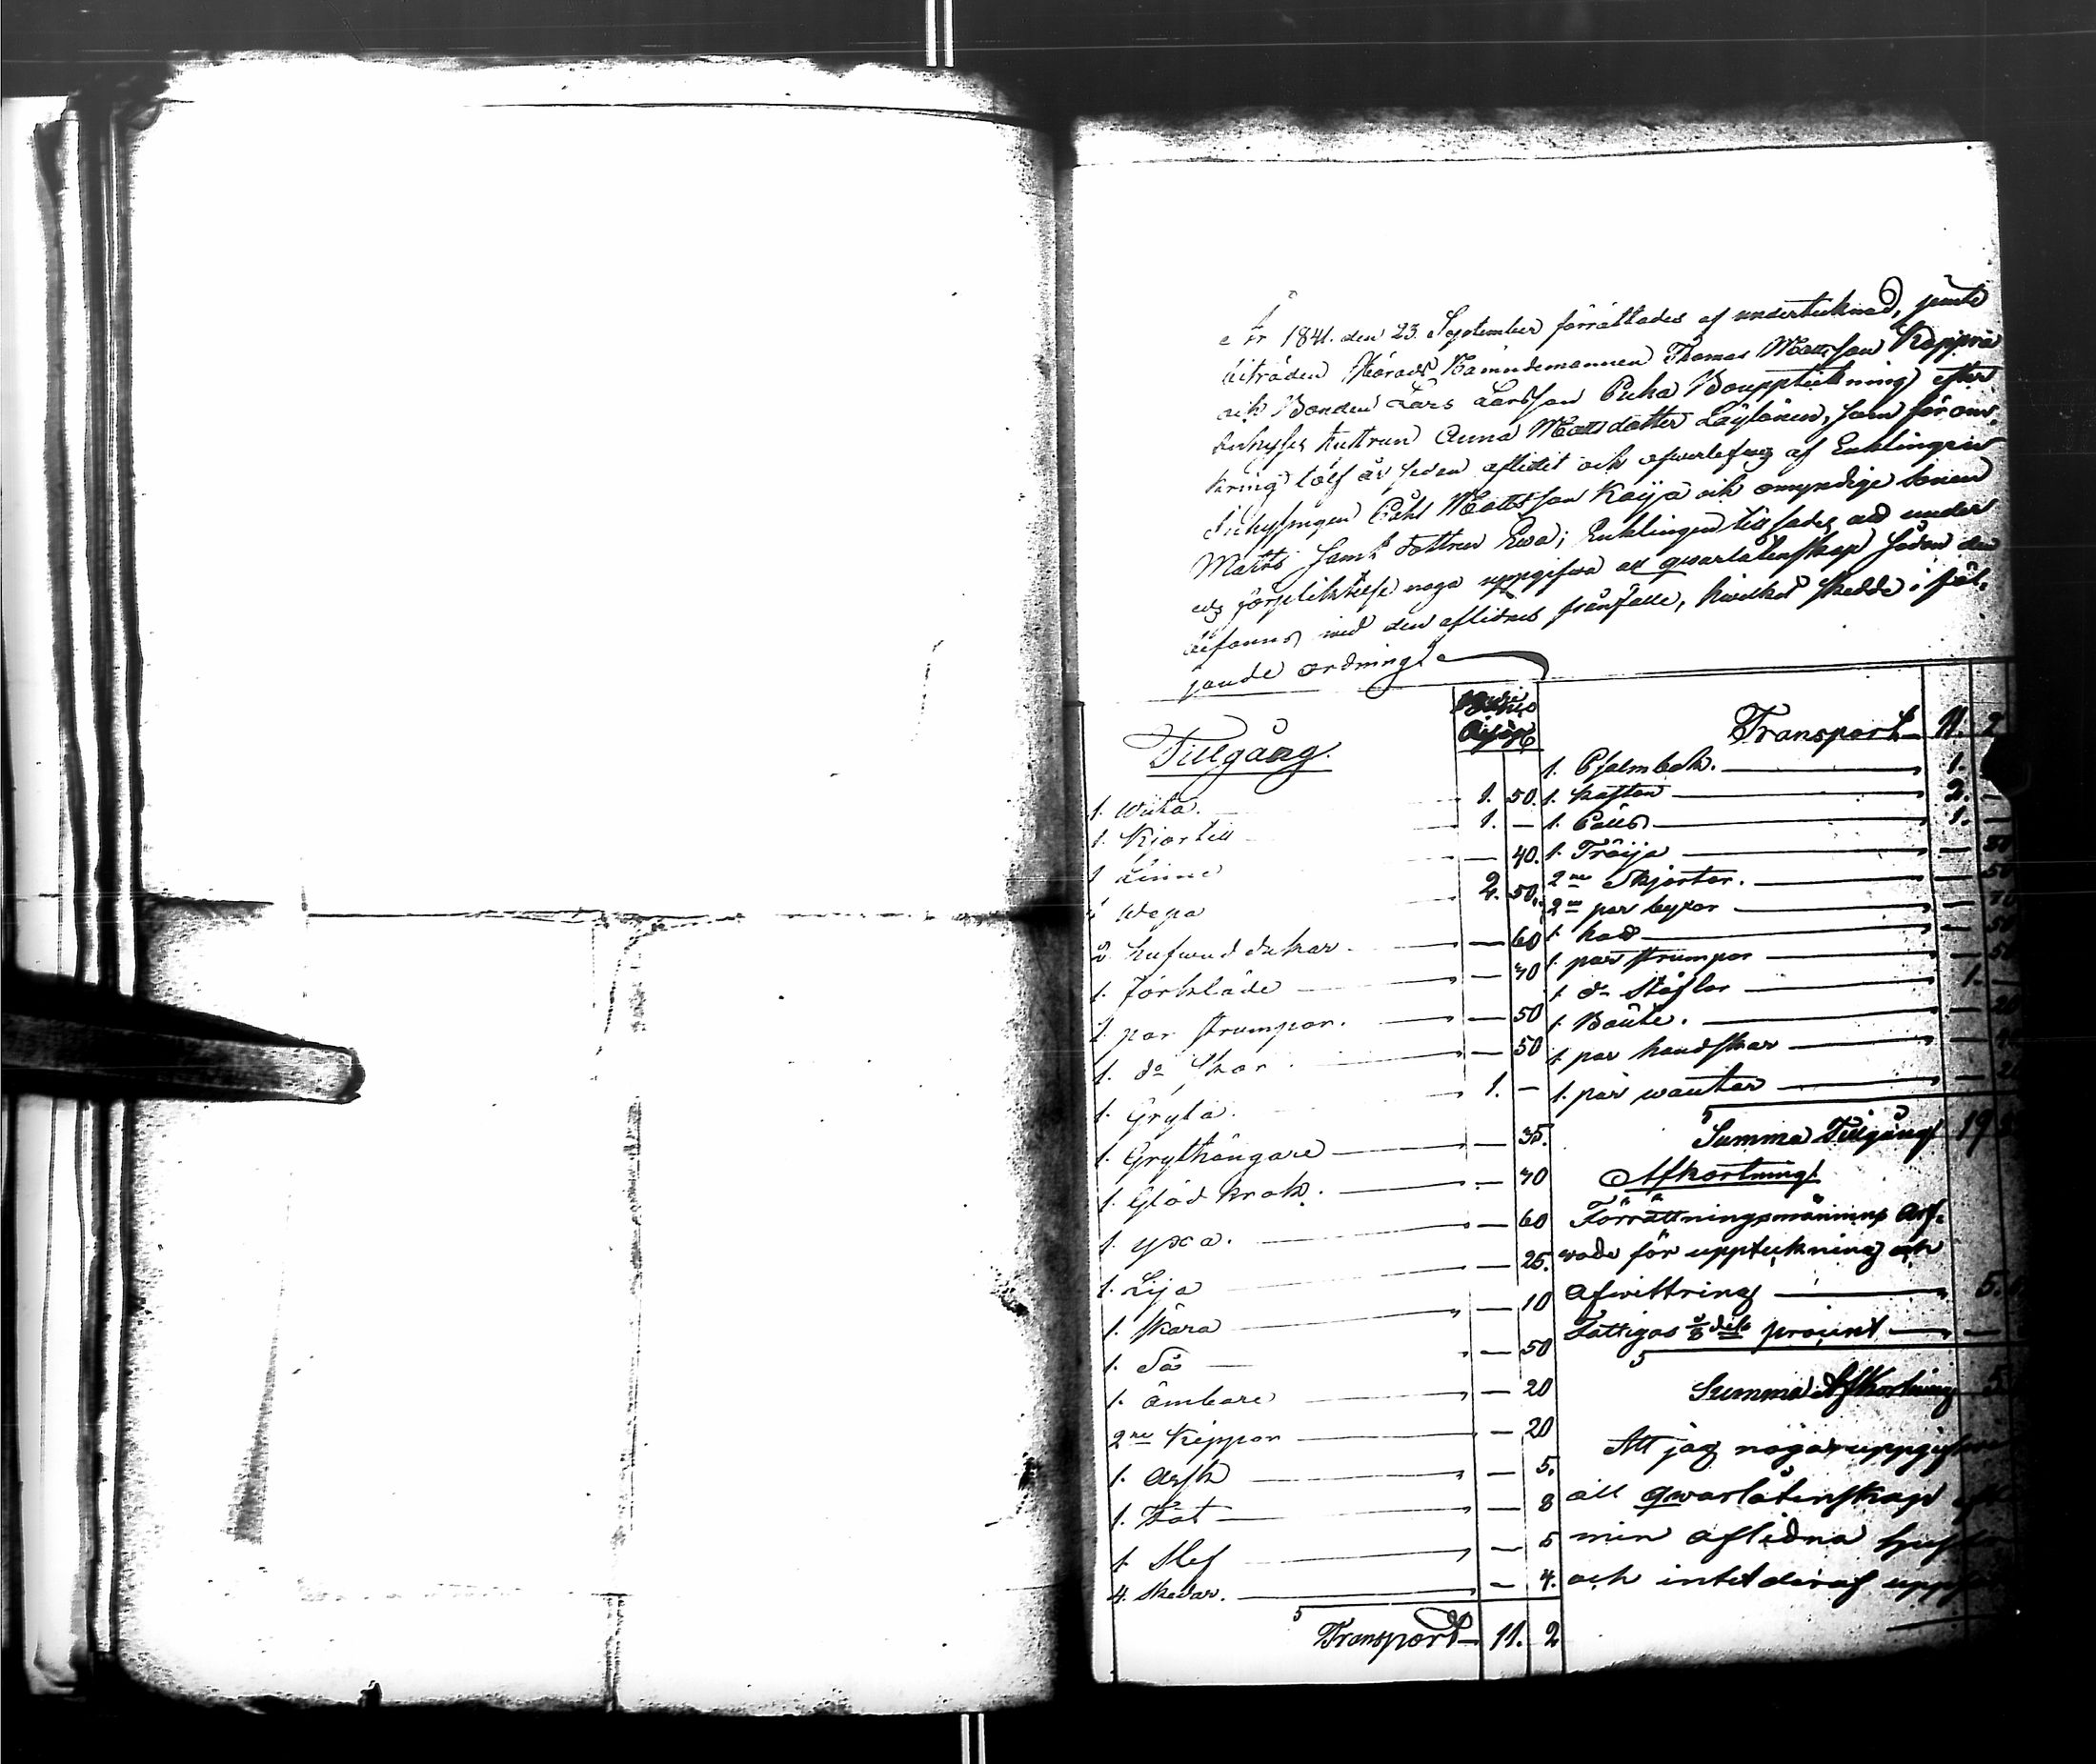 År 1841. den 23. September förrättades af undertecknad, jemte
biträden Härads Nämndemannen Thomas Mattsson Kappra
och Bonden Lars Larsson Puha Bouppteckning efter
Inhyses hustrun Anna Mattsdotter Löytönen, som för om-
kring tolf år sedan aflidit och efterlefwes af Enklingen
Inhysingen Påhl Mattsson Kaija och omyndige sonen
Matts samt dottren Ewa; Enklingen tillsades at under
edz förpliktelse noga uppgifwa all qwarlåtenskap sådan den
befanns wid den aflidnes frånfälle, hwilket skedde i föl-
jande ordning.
Tillgång.
1. 50.
1. Kjortell 1. —
1 Linne — 40.
2. 50.
2 hufwud dukar — 60
1. förkläde — 70
1. par strumpor. — 50
1. do Skor — 50
1. Gryta. 1. —
1. Grythängare — 35.
1. Glödkrok. — 70
1. yxa. — 60
1. Lija — 25.
1. skära — 10
1. Så — 50
1. ämbare — 20
2ne Kippor — 20
1. Ask — 5.
1. Fat — 8
1. Slef — 5
4. skedar. — 4.
Transport 11. 2
Transport 11. 2
1. Psalmbok. 1.
1. kaftan 2. —
1. Päls 1. —
1. Tröija —
2ne Skjortor. — 50
2ne par byxor — 70
1. hatt — 50
1. par strumpor — 50
1. do Stöflar 1. —
1. Bälte. — 20
1. par handskar —
1. par wantar —
Summa Tillgång 19
Afkortning
Förrättningsmännens arf-
wode för uppteckning och
afwittring 5.
Fattigas 1/8 dels procent —
Summa Afkortning 5
Att jag noga uppgifwit
all qwarlåtenskap
min aflidna hustru
och intet deraf